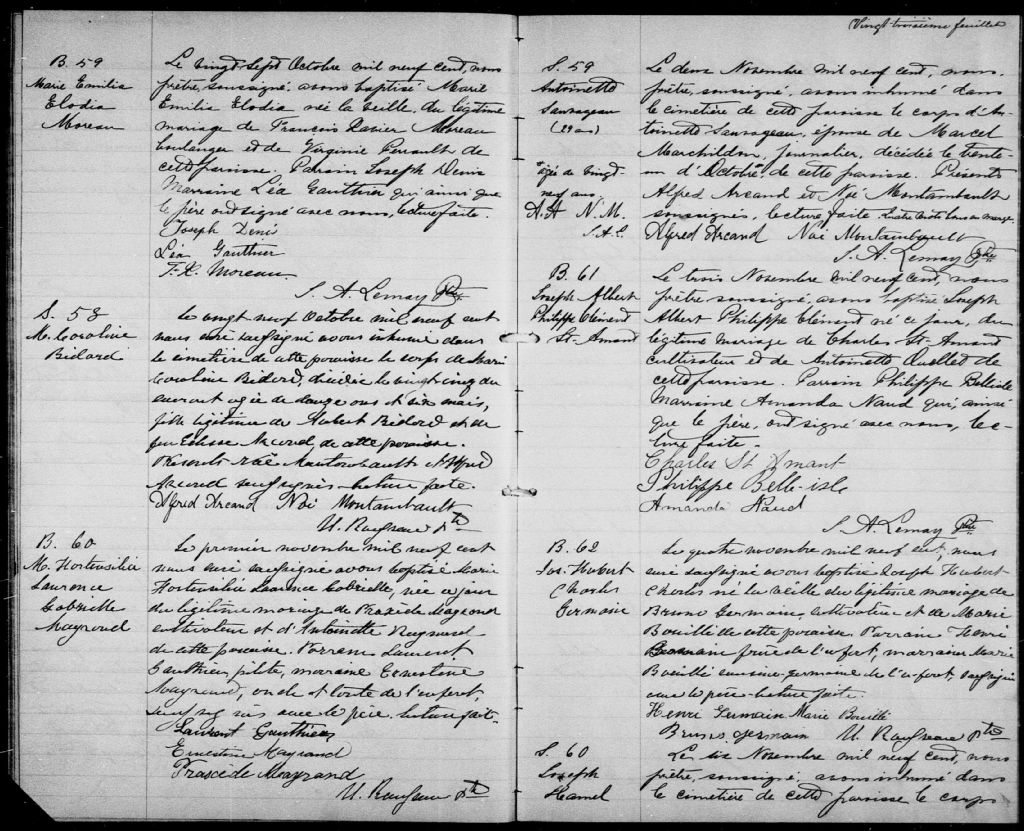 Vingt-troisième feuillet
B. 59
Marie Emilia
Elodia
Moreau
Le vingt-sept Octobre mil neuf cent, nous
prêtre, soussigné, avons baptisé Marie
Emilia Elodia née la veille, du légitime
mariage de François Xavier Moreau
boulanger et de Virginie Perrault de
cette paroisse. Parrain Joseph Denis
Marraine Léa Gauthier qui ainsi que
le père ont signé avec nous, lecture faite.
Joseph Denis
Léa Gauthier
F. X. Moreau
S. A. Lemay Ptre
S. 58
M. Caroline
Bédard
Le vingt neuf Octobre mil neuf cent
nous curé soussigné avons inhumé dans
le cimetière de cette paroisse le corps de Marie
Caroline Bédard, décédée le vingt cinq du
courant agée de douze ans et six mois,
fille légitime de Hubert Bédard et de
feu Arcand, de cette paroisse.
Présents Noé Montambault et Alfred
Arcand soussignés lecture faite.
Alfred Arcand Noé Montambault
U. Ptre
B. 60
M. Hortensilia
Laurence
Gabrielle
Mayrand
Le premier novembre mil neuf cent
nous curé soussigné avons baptisé Marie
Hortensilia Laurence Gabrielle, née ce jour
du légitime mariage de Praxède Mayrand
cultivateur et d'Antoinette
de cette paroisse. Parrain Laurent
Gauthier, pilote, marraine Ernestine
Mayrand, oncle et tante de l'enfant,
soussignés avec le père. lecture faite.
Laurent Gauthier
Ernestine Mayrand
Praxcède Mayrand
U. Ptre
S. 59
Antoinette
Sauvageau
(29 ans)
*agée de vingt
neuf ans,
A. A N. M.
S. A. L.
Le deux Novembre mil neuf cent, nous,
prêtre, soussigné, avons inhumé dans
le cimetière de cette paroisse le corps d'An-
toinette Sauvageau, épouse de Marcel
Marchildon, journalier, décédée le trente-
un d'Octobre, de cette paroisse. Présents
Alfred Arcand et Noé Montambault
soussignés, lecture faite. Quatre mots bons en marge.
Alfred Arcand Noé Montambault
S. A. Lemay Ptre
B. 61
Joseph Albert
Philippe Clément
St-Amand
Le trois Novembre mil neuf cent, nous
prêtre soussigné, avons baptisé Joseph
Albert Philippe Clément né ce jour, du
légitime mariage de Charles St-Amand
cultivateur et de Antoinette Ouellet de
cette paroisse. Parrain Philippe Belleisle
Marraine Amanda Naud qui, ainsi
que le père, ont signé avec nous, lec-
ture faite.
Charles St Amant
Philippe Belle-isle
Amanda Naud
S. A. Lemay Ptre
B. 62
Jos. Hubert
Charles
Germain
Le quatre novembre mil neuf cent, nous
curé soussigné avons baptisé Joseph Hubert
Charles né la veille du légitime mariage de
Bruno Germain, cultivateur et de Marie
Bouillé de cette paroisse. Parrain Henri
Germain frère de l'enfant, marraine Marie
Bouillé cousine-germaine de l'enfant, soussignés
avec le père lecture faite.
Henri Germain Marie Bouillé
Bruno Germain U. Ptre
S. 60
Joseph
Hamel
Le six Novembre mil neuf cent, nous
prêtre, soussigné, avons inhumé dans
le cimetière de cette paroisse le corps